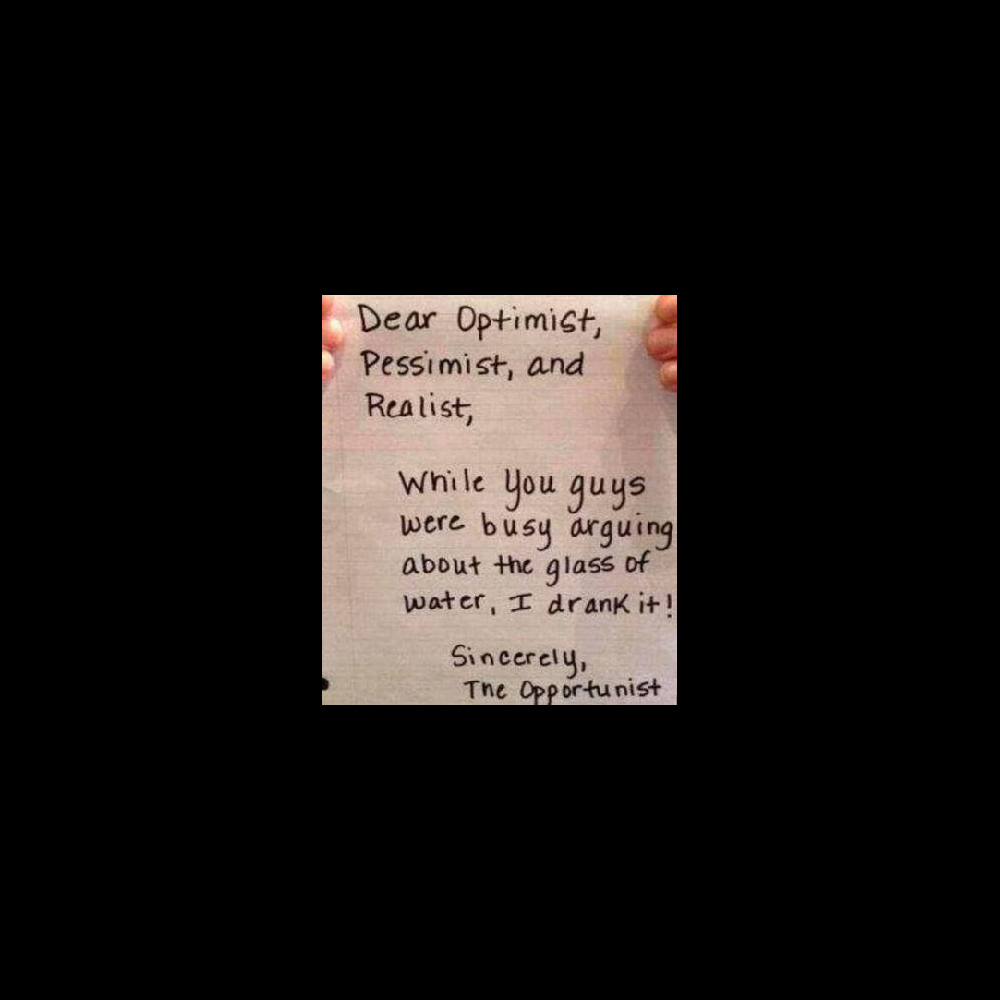 Dear Optimist,
Pessimist, and
Realist,
While you guys
were busy arguing
about the glass of
water, I drank it!
Sincerely,
The Opportunist